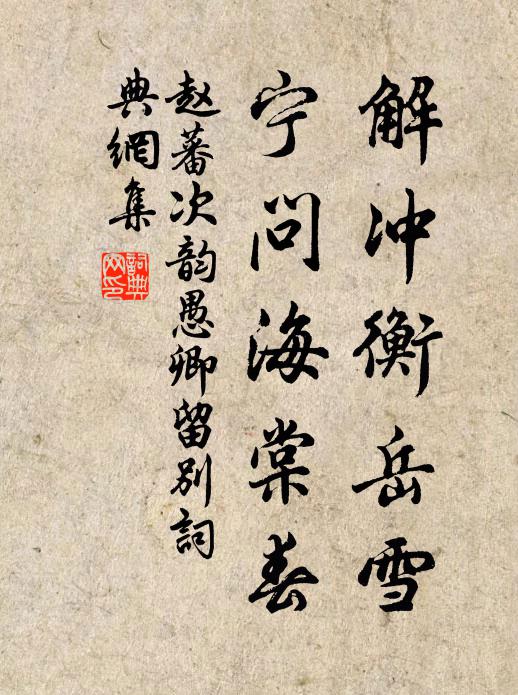 解冲衡岳雪
宁问海棠春
赵蕃次韵愚卿留别詞
典網集
詞典
网印